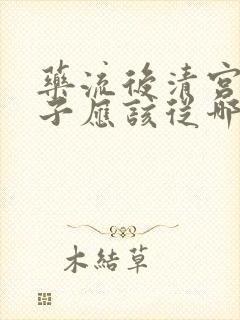 藥流後清宮
子應該從哪
木結草